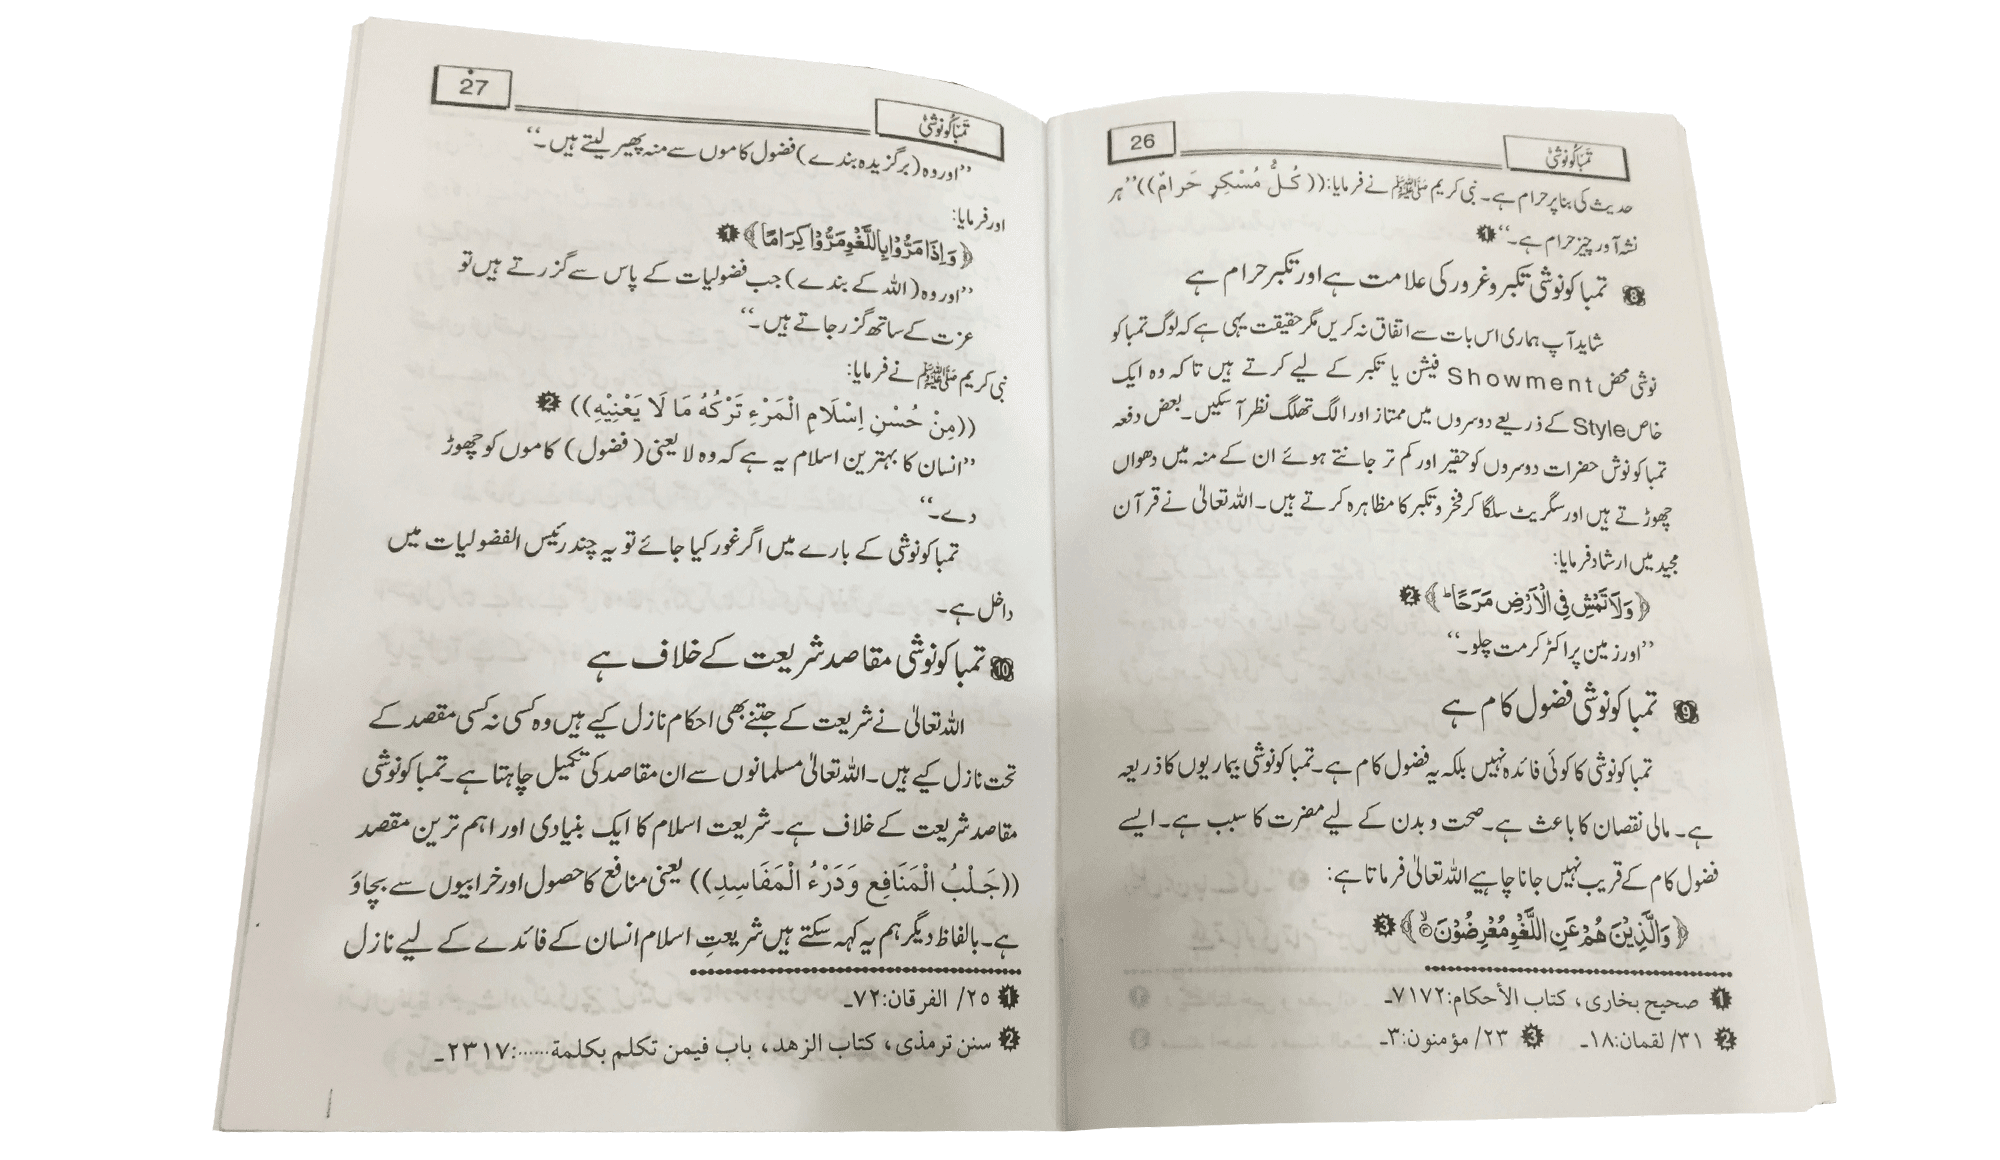 تمباکونوشی
26
حدیث کی بنا پر حرام ہے۔ نبی کریم ﷺ نے فرمایا: ((كُلُّ مُسْكِرٍ حَرامٌ)) ’’ہر
نشہ آور چیز حرام ہے۔‘‘ 1
8 تمباکونوشی تکبر و غرور کی علامت ہے اور تکبر حرام ہے
شاید آپ ہماری اس بات سے اتفاق نہ کریں مگر حقیقت یہی ہے کہ لوگ تمباکو
نوشی محض Showment فیشن یا تکبر کے لیے کرتے ہیں تاکہ وہ ایک
خاص Style کے ذریعے دوسروں میں ممتاز اور الگ تھلگ نظر آ سکیں۔ بعض دفعہ
تمباکونوش حضرات دوسروں کو حقیر اور کم تر جانتے ہوئے ان کے منہ میں دھواں
چھوڑتے ہیں اور سگریٹ سلگا کر فخر و تکبر کا مظاہرہ کرتے ہیں۔ اللہ تعالیٰ نے قرآن
مجید میں ارشاد فرمایا:
﴿وَلَا تَمْشِ فِي الْاَرْضِ مَرَحًا ؕ﴾ 2
’’اور زمین پر اکڑ کر مت چلو۔‘‘
9 تمباکونوشی فضول کام ہے
تمباکونوشی کا کوئی فائدہ نہیں بلکہ یہ فضول کام ہے۔ تمباکونوشی بیماریوں کا ذریعہ
ہے۔ مالی نقصان کا باعث ہے۔ صحت و بدن کے لیے مضرت کا سبب ہے۔ ایسے
فضول کام کے قریب نہیں جانا چاہیے اللہ تعالیٰ فرماتا ہے:
﴿وَالَّذِيْنَ هُمْ عَنِ اللَّغْوِ مُعْرِضُوْنَ ۙ۳﴾ 3
1 صحیح بخاری، کتاب الأحکام: ۷۱۷۲۔
2 ۳۱/ لقمان: ۱۸۔ 3 ۲۳/ مؤمنون: ۳۔
تمباکونوشی
27
’’اور وہ (برگزیدہ بندے) فضول کاموں سے منہ پھیر لیتے ہیں۔‘‘
اور فرمایا:
﴿وَاِذَا مَرُّوْا بِاللَّغْوِ مَرُّوْا كِرَامًا﴾ 1
’’اور وہ (اللہ کے بندے) جب فضولیات کے پاس سے گزرتے ہیں تو
عزت کے ساتھ گزر جاتے ہیں۔‘‘
نبی کریم ﷺ نے فرمایا:
((مِنْ حُسْنِ اِسْلَامِ الْمَرْءِ تَرْكُهُ مَا لَا يَعْنِيْهِ)) 2
’’انسان کا بہترین اسلام یہ ہے کہ وہ لایعنی (فضول) کاموں کو چھوڑ
دے۔‘‘
تمباکونوشی کے بارے میں اگر غور کیا جائے تو یہ چند رئیس الفضولیات میں
داخل ہے۔
10 تمباکونوشی مقاصد شریعت کے خلاف ہے
اللہ تعالیٰ نے شریعت کے جتنے بھی احکام نازل کیے ہیں وہ کسی نہ کسی مقصد کے
تحت نازل کیے ہیں۔ اللہ تعالیٰ مسلمانوں سے ان مقاصد کی تکمیل چاہتا ہے۔ تمباکونوشی
مقاصد شریعت کے خلاف ہے۔ شریعت اسلام کا ایک بنیادی اور اہم ترین مقصد
((جَلْبُ الْمَنَافِعِ وَدَرْءُ الْمَفَاسِدِ)) یعنی منافع کا حصول اور خرابیوں سے بچاؤ
ہے۔ بالفاظ دیگر ہم یہ کہہ سکتے ہیں شریعتِ اسلام انسان کے فائدے کے لیے نازل
1 ۲۵/ الفرقان: ۷۲۔
2 سنن ترمذی، کتاب الزھد، باب فیمن تکلم بکلمة......: ۲۳۱۷۔